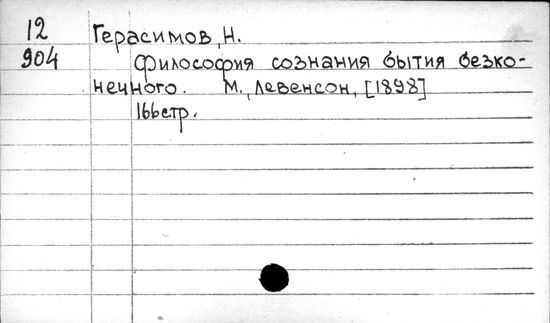 12 Герасимов, Н.
904 Философия сознания бытия безко-
нечного. М., Левенсон, [1898]
166стр.